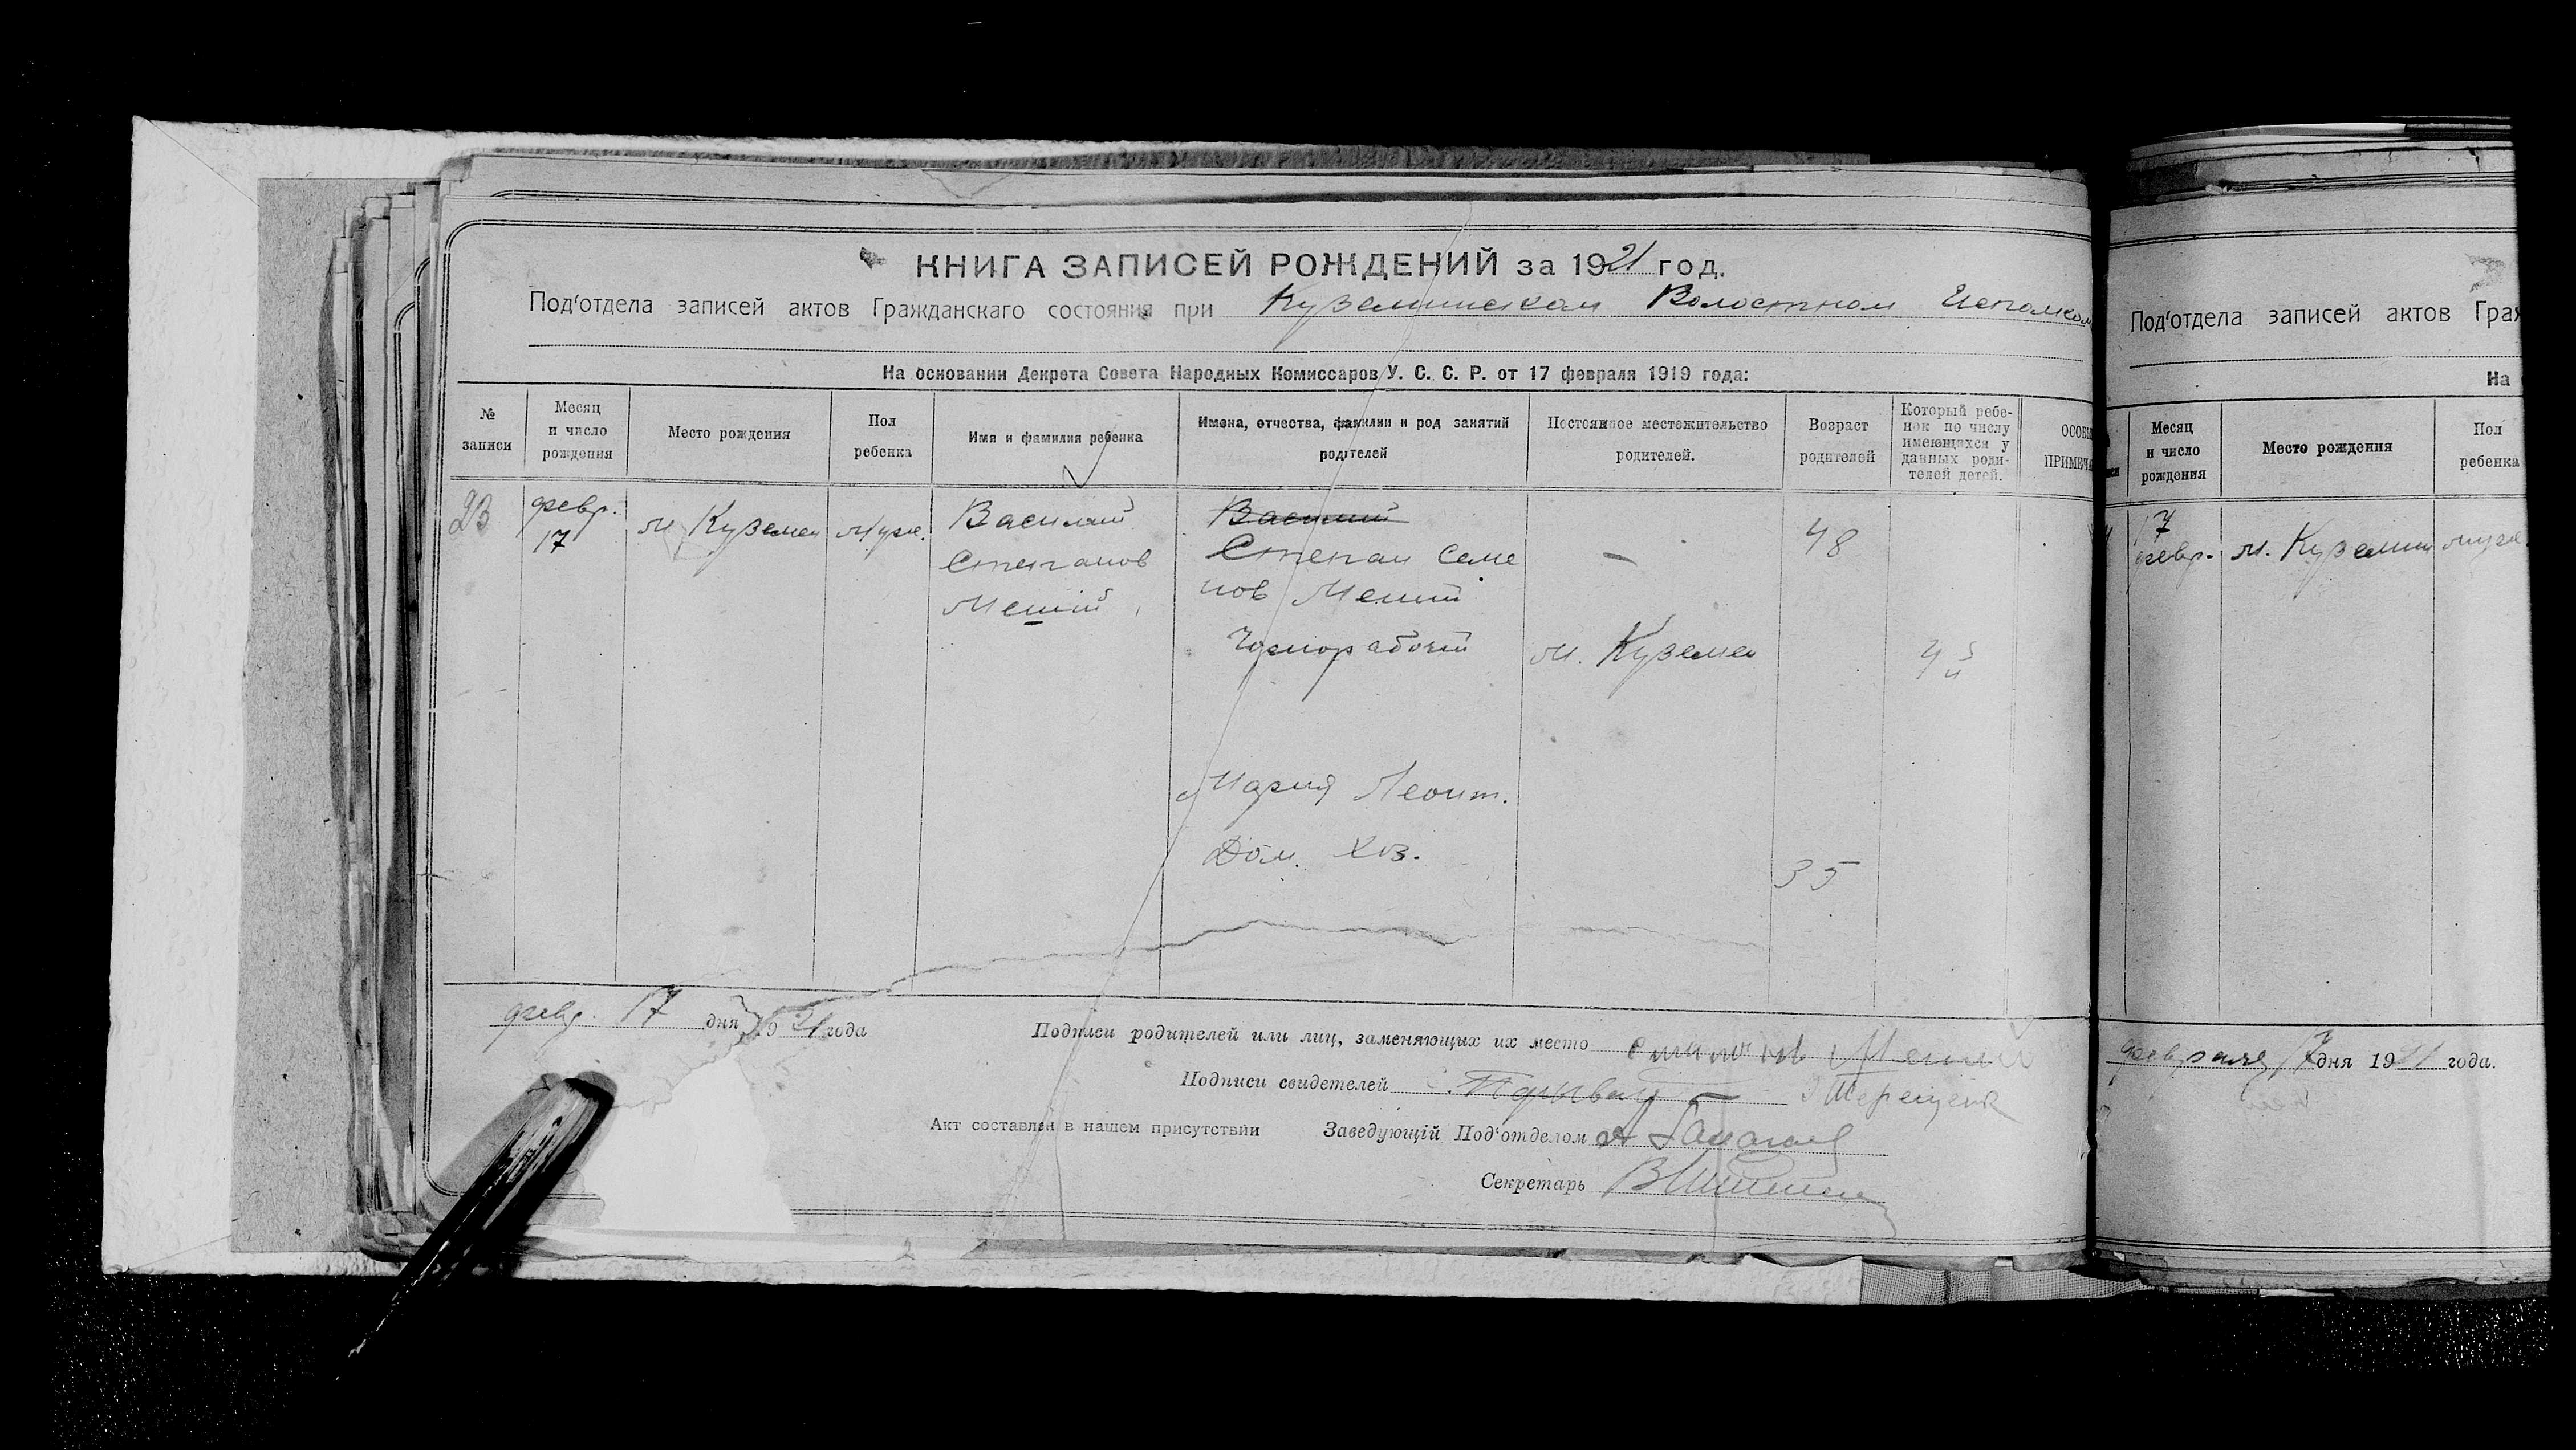 КНИГА ЗАПИСЕЙ РОЖДЕНИЙ за 1921 год.
Под'отдела записей актов Гражданскаго состояния при Куземинском Волостном Исполком
На основании Декрета Совета Народных Комиссаров У. С. С. Р. от 17 февраля 1919 года:
№ записи
Месяц и число рождения
Место рождения
Пол ребенка
Имя и фамилия ребенка
Имена, отчества, фамилии и род занятий родителей
Постоянное местожительство родителей.
Возраст родителей
Который ребе-
нок по числу
имеющихся у
данных роди-
телей детей.
ОСОБЫ
ПРИМЕЧА
23
февр.
17
м. Куземен
Муж.
Василий
Степанов
Мений
Василий
Степан Семе
нов Мений
Чернорабочий
м. Куземен
48
4й
Мария Леонт.
Дом. хоз.
35
февр. 17 дня 1921 года
Подписи родителей или лиц, заменяющих их место
Подписи свидетелей
Акт составлен в нашем присутствии
Заведующій Под'отделом
Секретарь
Под'отдела записей актов Граж
На
Месяц и число рождения
Место рождения
Пол ребенка
17
февр.
м. Куземин
муж.
февраля 17 дня 1921 года.